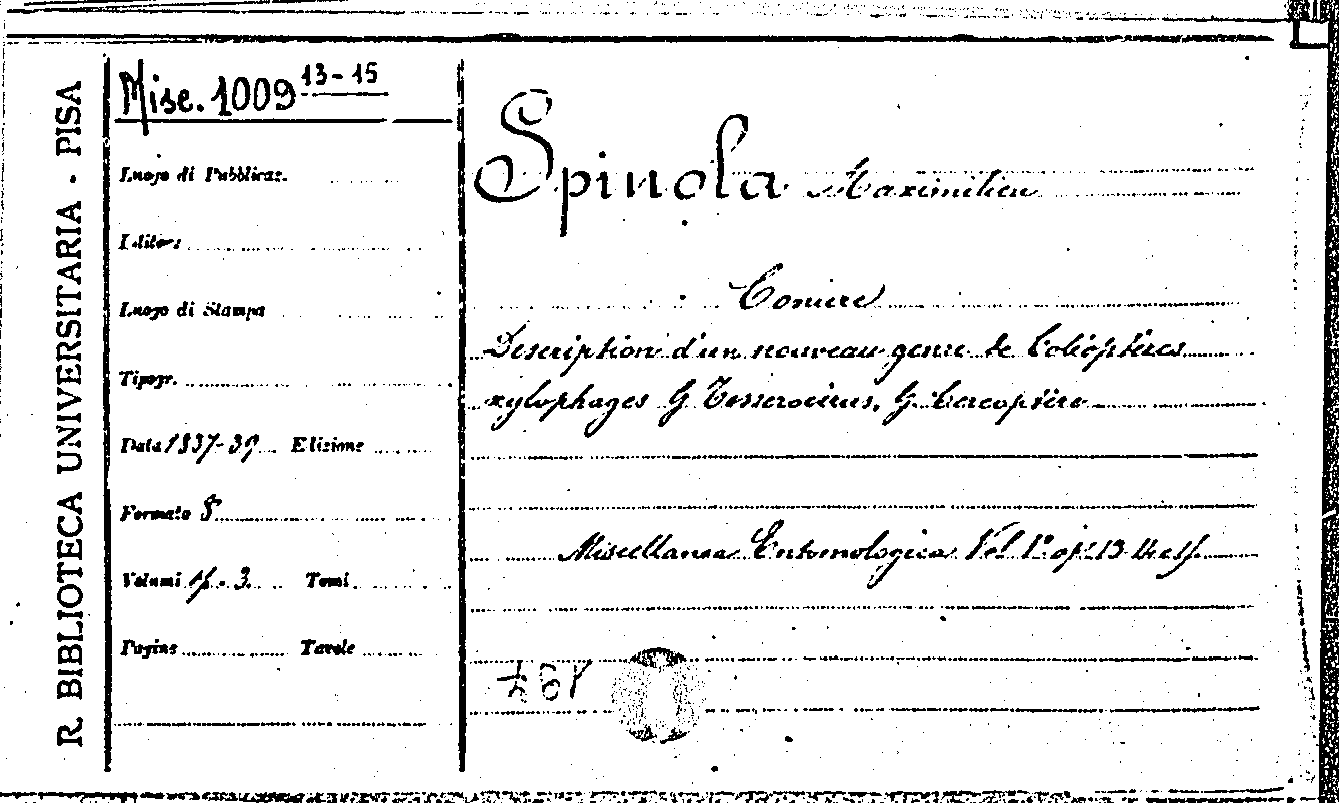 R. BIBLIOTECA UNIVERSITARIA - PISA
Misc. 1009 13-15
Luogo di Pubblicaz.
Editore
Luogo di Stampa
Tipogr.
Data 1837-39 Edizione
Formato 8°
Volumi 1/. 3 Tomi
Pagine Tavole
Spinola Maximilien
Description d'un nouveau genre de Coléoptères
xylophages G Tesserocerus, G. Cercoptère
Miscellanea Entomologica Vol 1° op. 13 14 e 15